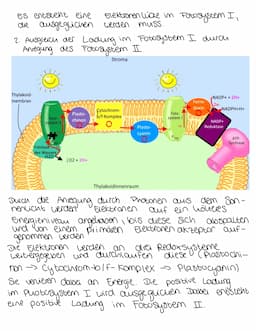 Es entsteht eine Elektronenlücke im Fotosystem I,
die ausgeglichen werden muss.
2. Ausgleich der Ladung im Fotosystem I durch
Anregung des Fotosystem II.
Stroma
Thylakoid-
membran
Plasto-
chinon
Cytochrom-
b/f-Komplex
Plasto-
cyanin
Foto-
system I
NADP+
Reduktase
NADP+ + 2H+
NADPH+H+
ATP
Synthase
1/2 O2 + 2H+
Thylakoidinnenraum
Durch die Anregung durch Photonen aus dem Son-
nenlicht werden Elektronen auf ein höheres
Energieniveau angehoben, bis diese sich abspalten
und von einem primären Elektronen akzeptor auf-
genommen werden
Die Elektronen werden an drei Redoxsysteme
weitergegeben und durchlaufen diese (Plastochi-
non → Cytochrom-b/f-Komplex → Plastocyanin)
Sie verlieren dabei an Energie. Die positive Ladung
im Photosystem I wird ausgeglichen. Dabei entsteht
eine positive Ladung im Fotosystem II.